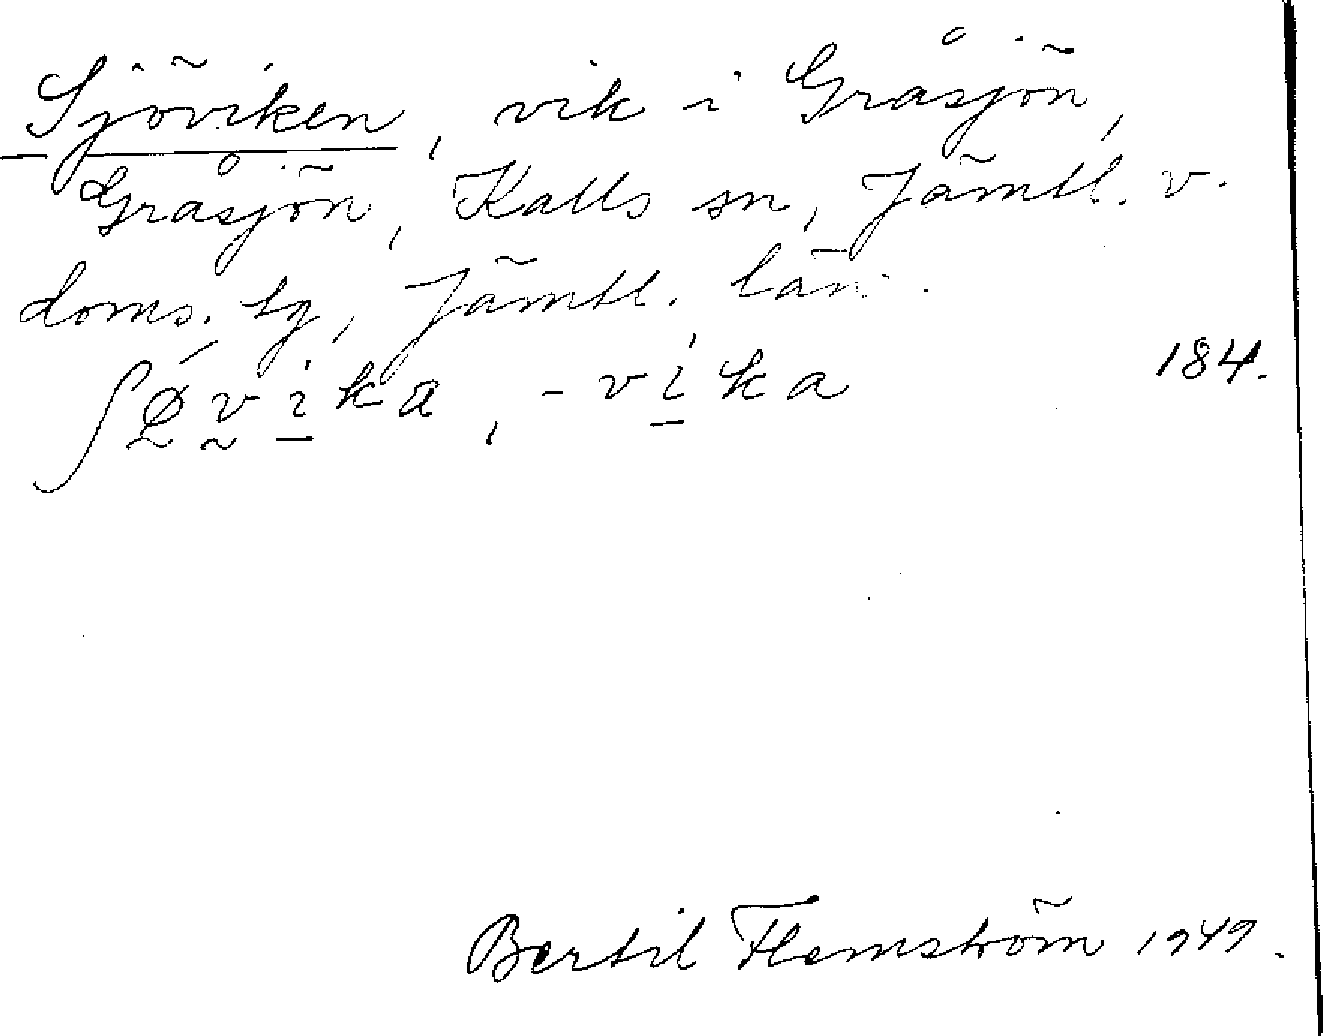 Sjöviken, vik i Gråsjön,
Gråsjön, Kalls sn, Jämtl. v.
doms. tg, Jämtl. län.
ʃø̰v̰i̱ka, -vi̱ka 184.
Bertil Flemström 1949.